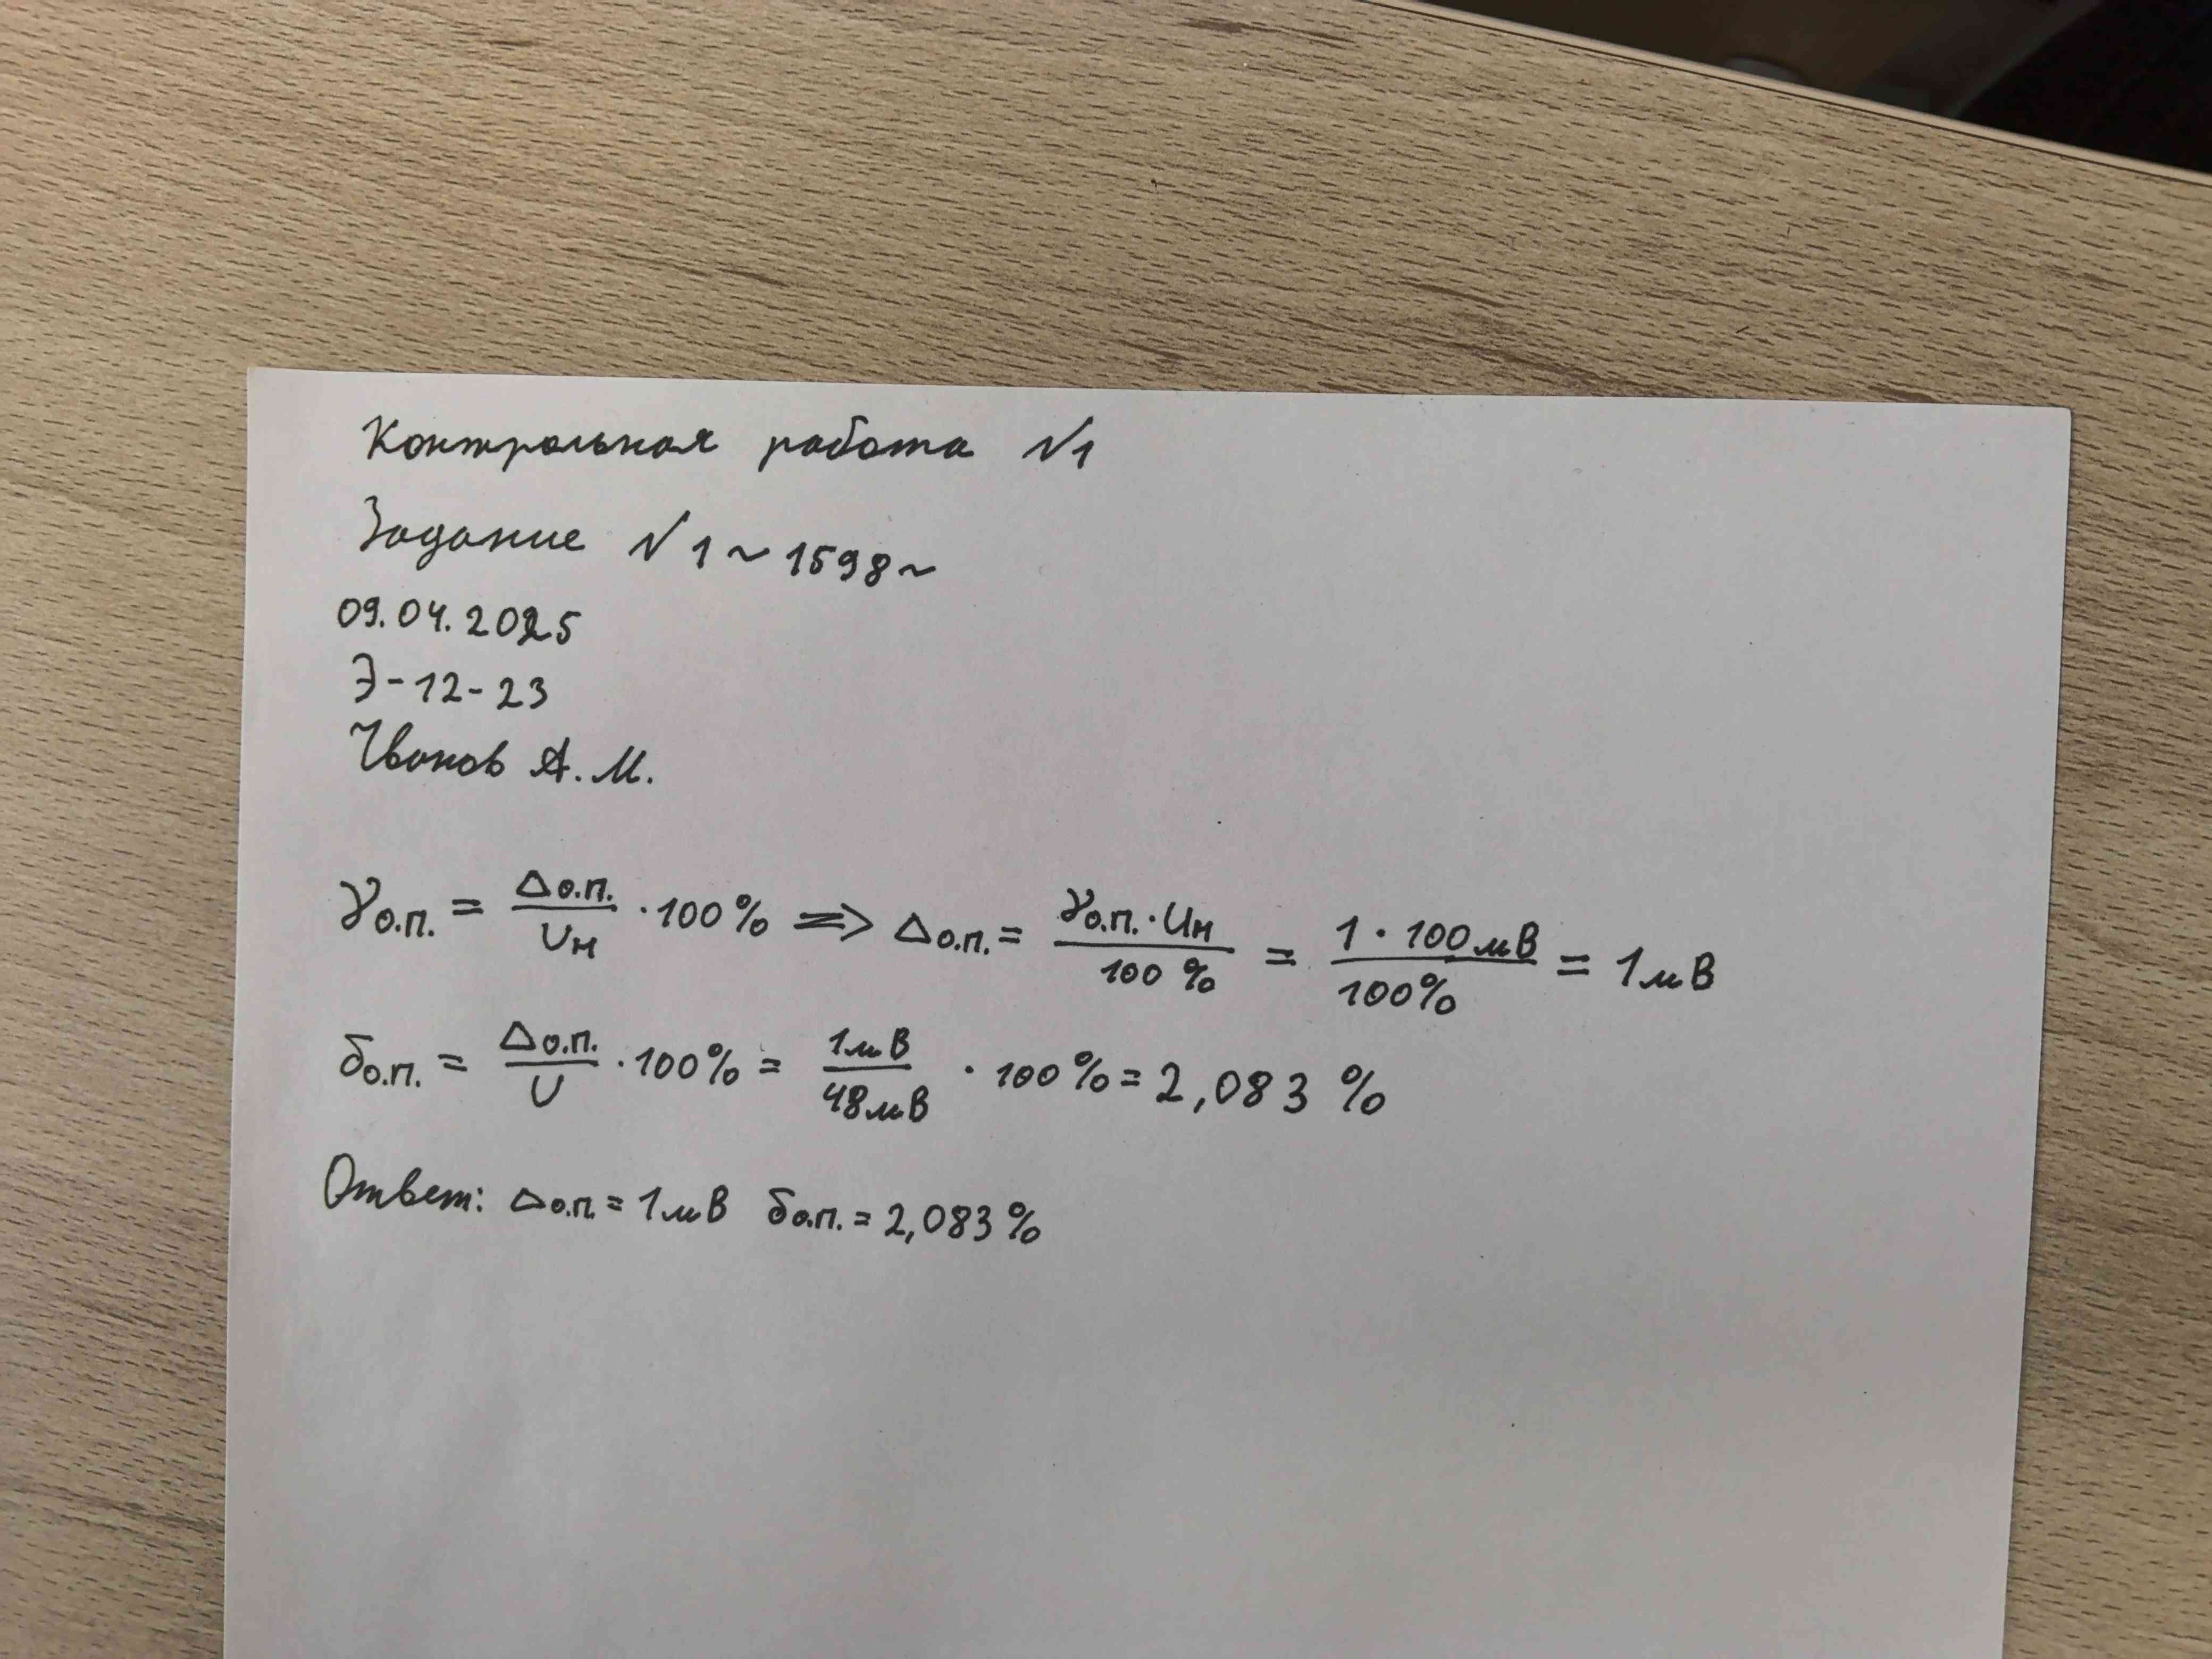 Контрольная работа №1
Задание №1 ~ 1598~
09.04.2025
Э-12-23
А.М.
γо.п. = Δо.п. / Uн · 100% => Δо.п. = γо.п. · Uн / 100 % = 1 · 100 мВ / 100% = 1 мВ
δо.п. = Δо.п. / U · 100% = 1мВ / 48мВ · 100% = 2,083 %
Ответ: Δо.п. = 1 мВ δо.п. = 2,083 %